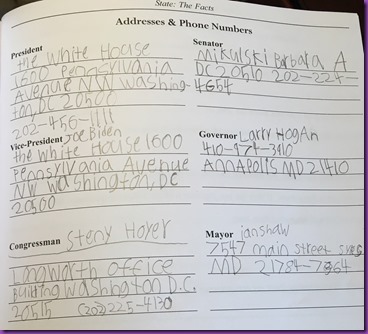 State: The Facts
Addresses & Phone Numbers
President
the White House
1600 Pennsylvania
Avenue NW Washing-
ton, DC 20500
202-456-1111
Vice-President Joe Biden
the White House 1600
Pennsylvania Avenue
NW Washington, DC
20500
Congressman Steny Hoyer
Longworth office
Building Washington D.C.
20515 (202) 225-4130
Senator
Mikulski Barbara A
DC 20510 202-224-
4654
Governor Larry HogAn
410-974-3910
AnnAPolis MD 21410
Mayor janshaw
7547 main street
MD 21784-7364